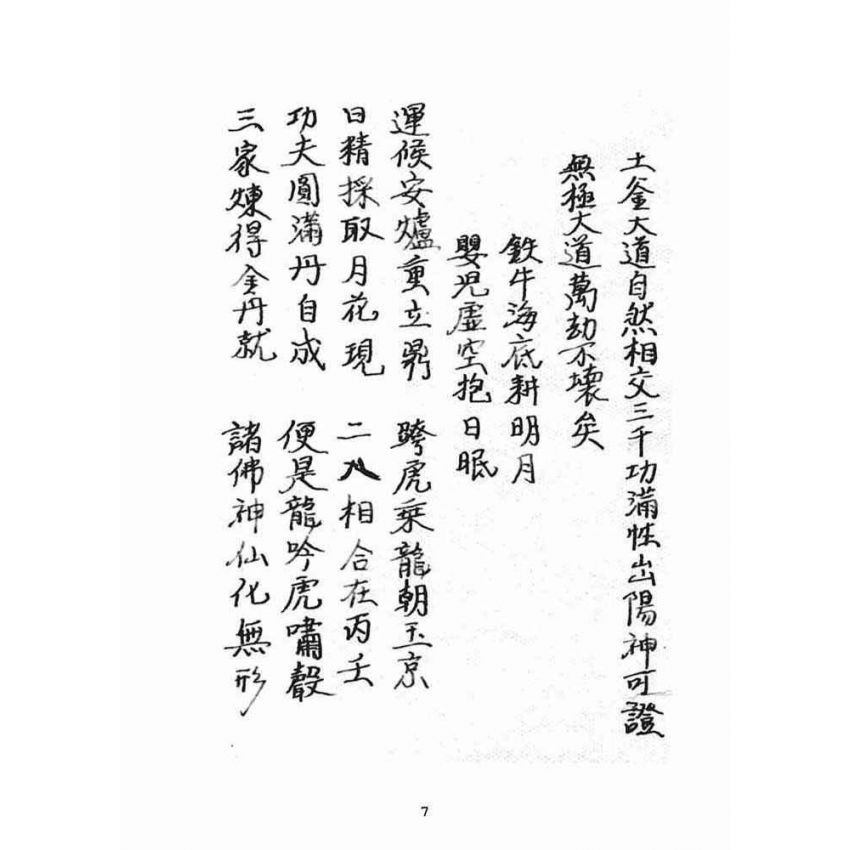 土釜大道自然相交三千功滿性出陽神可證
無極大道萬劫不壞矣
鉄牛海底耕明月
嬰児虛空抱日眠
運候安爐重立鼎 跨虎乘龍朝玉京
日精採取月花現 二八相合在丙壬
功夫圓滿丹自成 便是龍吟虎嘯聲
三家煉得金丹就 諸佛神仙化無形
7